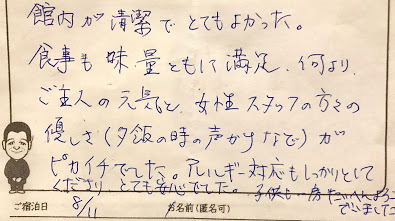 館内が清潔でとてもよかった。
食事も味量ともに満足、何より、
ご主人の元気と、女性スタッフの方々の
優しさ(夕飯の時の声かけなど)が
ピカイチでした。アレルギー対応もしっかりとして
くださり とても安心でした。子供も一房
ございました
ご宿泊日
8/11
お名前(匿名可)